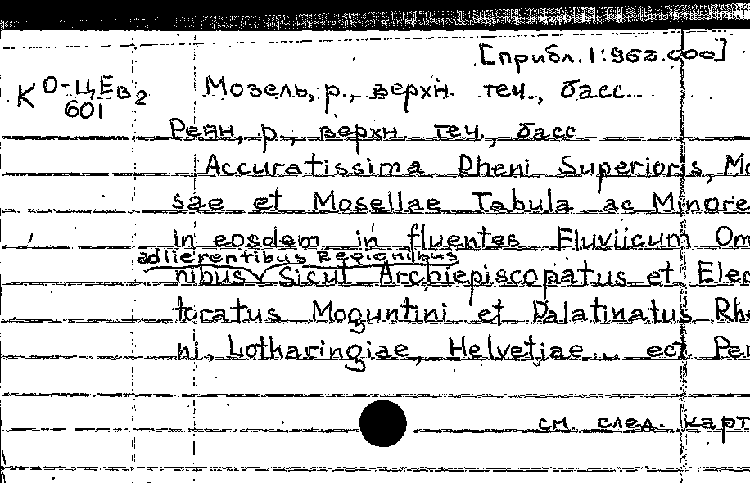 [прибл. 1:962.000]
К О-ЦЕв2
601
Мозель, р., верхн. теч., басс.
Рейн, р., верхн. теч., басс
Accuratissima Rheni Superioris, Mo
sae et Mosellae Tabula ac Minore
in eosdem in fluentes Fluviicum Om
adlierentibus Regionibus
nibus v Sicut Archiepiscopatus et Elec
toratus Moguntini et Palatinatus Rhe
ni, Lotharingiae, Helvetiae... ect Per
см. след. карт